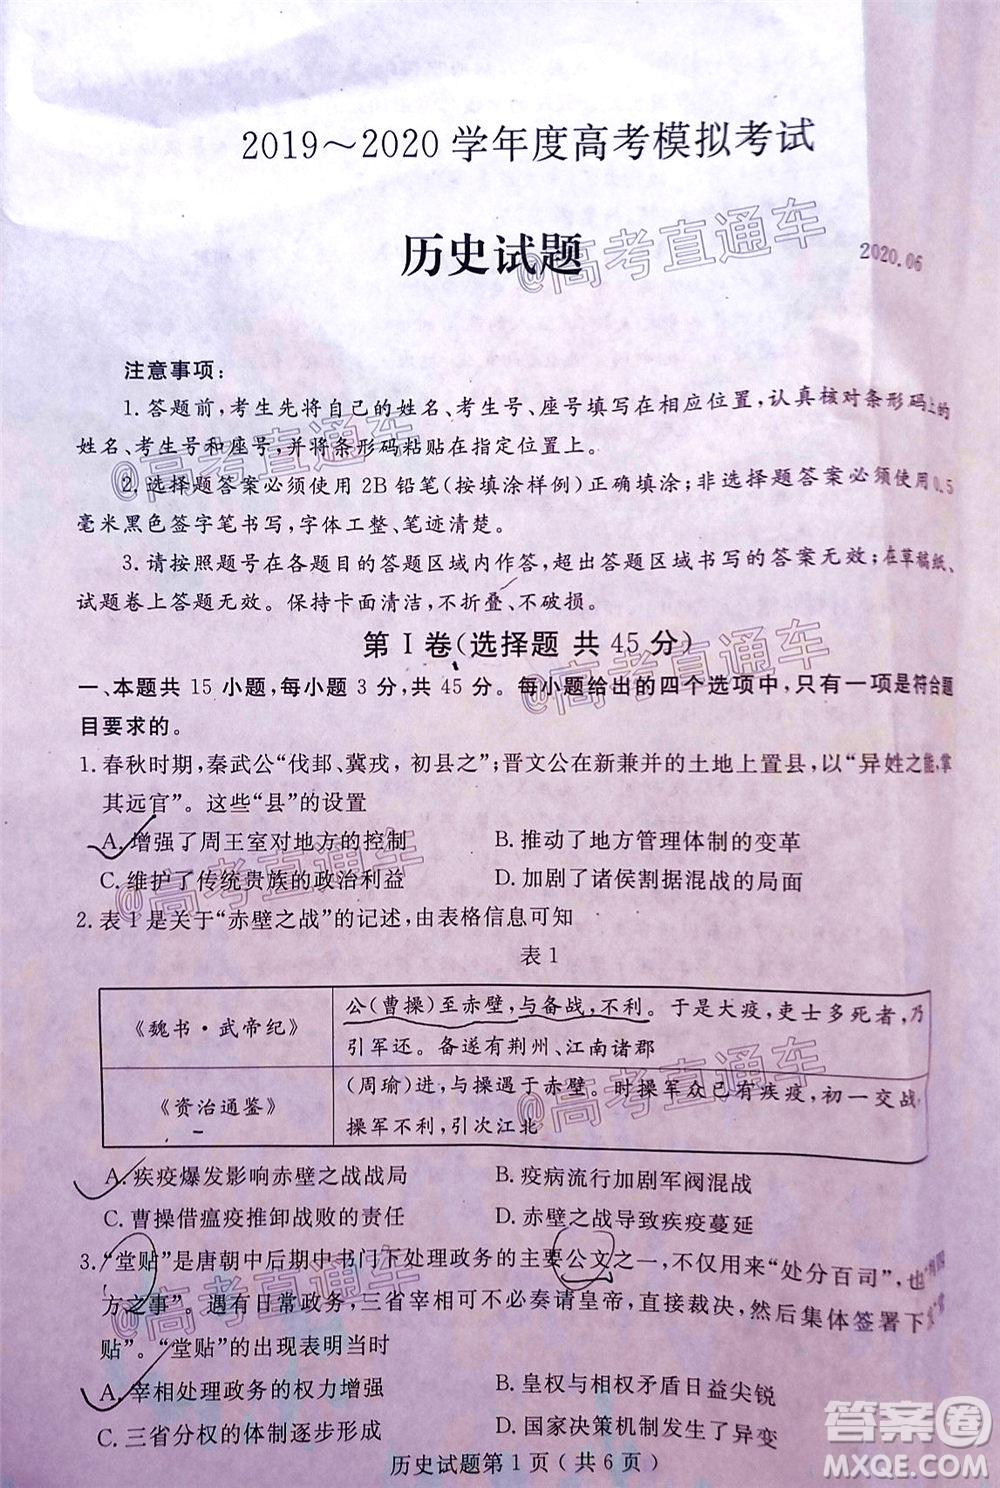 2019～2020学年度高考模拟考试
历史试题
@高考直通车
2020.06
注意事项：
1.答题前，考生先将自己的姓名、考生号、座号填写在相应位置，认真核对条形码上的
姓名、考生号和座号，并将条形码粘贴在指定位置上。
@高考直通车
2.选择题答案必须使用2B铅笔（按填涂样例）正确填涂；非选择题答案必须使用0.5
毫米黑色签字笔书写，字体工整、笔迹清楚。
3.请按照题号在各题目的答题区域内作答，超出答题区域书写的答案无效；在草稿纸、
试题卷上答题无效。保持卡面清洁，不折叠、不破损。
第Ⅰ卷（选择题 共45分）
@高考直通车
一、本题共15小题，每小题3分，共45分。每小题给出的四个选项中，只有一项是符合题
目要求的。
1.春秋时期，秦武公“伐邽、冀戎，初县之”；晋文公在新兼并的土地上置县，以“异姓之能，掌
其远官”。这些“县”的设置
A.增强了周王室对地方的控制 B.推动了地方管理体制的变革
C.维护了传统贵族的政治利益 D.加剧了诸侯割据混战的局面
@高考直通车
2.表1是关于“赤壁之战”的记述，由表格信息可知
表1
《魏书·武帝纪》 公（曹操）至赤壁，与备战，不利。于是大疫，吏士多死者，乃
引军还。备遂有荆州、江南诸郡
《资治通鉴》 （周瑜）进，与操遇于赤壁。时操军众已有疾疫，初一交战，
操军不利，引次江北
@高考直通车
A.疾疫爆发影响赤壁之战战局 B.疫病流行加剧军阀混战
C.曹操借瘟疫推卸战败的责任 D.赤壁之战导致疾疫蔓延
3.“堂贴”是唐朝中后期中书门下处理政务的主要公文之一，不仅用来“处分百司”，也
方之事”。遇有日常政务，三省宰相可不必奏请皇帝，直接裁决，然后集体签署下
贴”。“堂贴”的出现表明当时
@高考直通车
A.宰相处理政务的权力增强 B.皇权与相权矛盾日益尖锐
C.三省分权的体制逐步形成 D.国家决策机制发生了异变
历史试题第1页（共6页）
答案圈
MXQE.COM